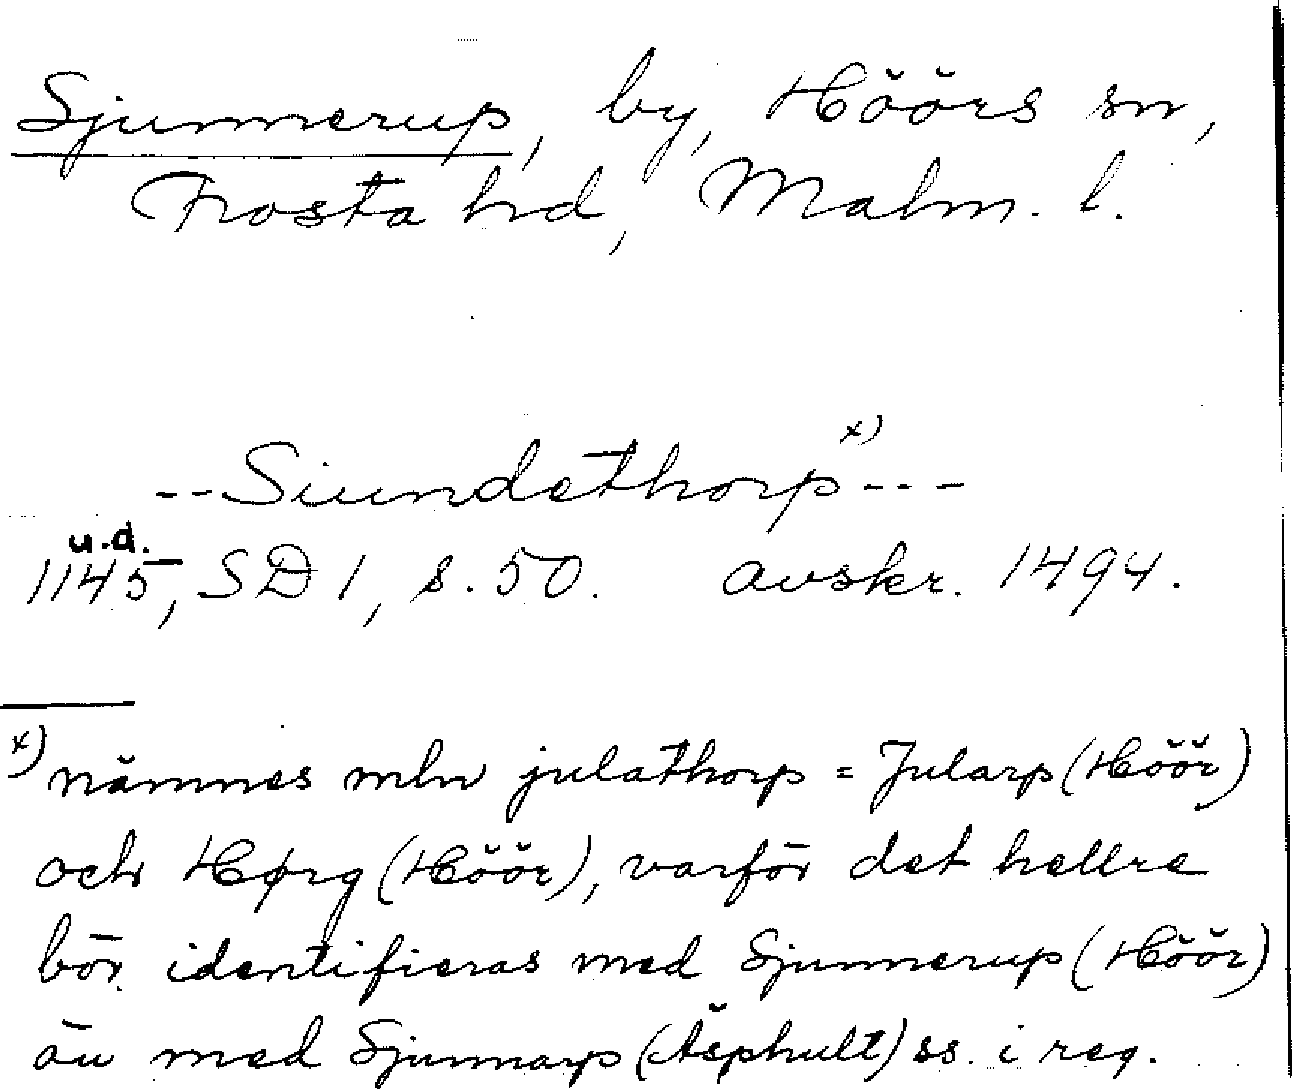 Sjunnerup, by, Höörs sn,
Frosta hd, Malm. l.
--Siundethorp x)---
u.d.
1145, SD 1, s. 50. avskr. 1494.
x) nämnes mln julathorp = Jularp (Höör)
och Hørg (Höör), varför det hellre
bör identifieras med Sjunnerup (Höör)
än med Sjunnarp (Äsphult) ss. i reg.